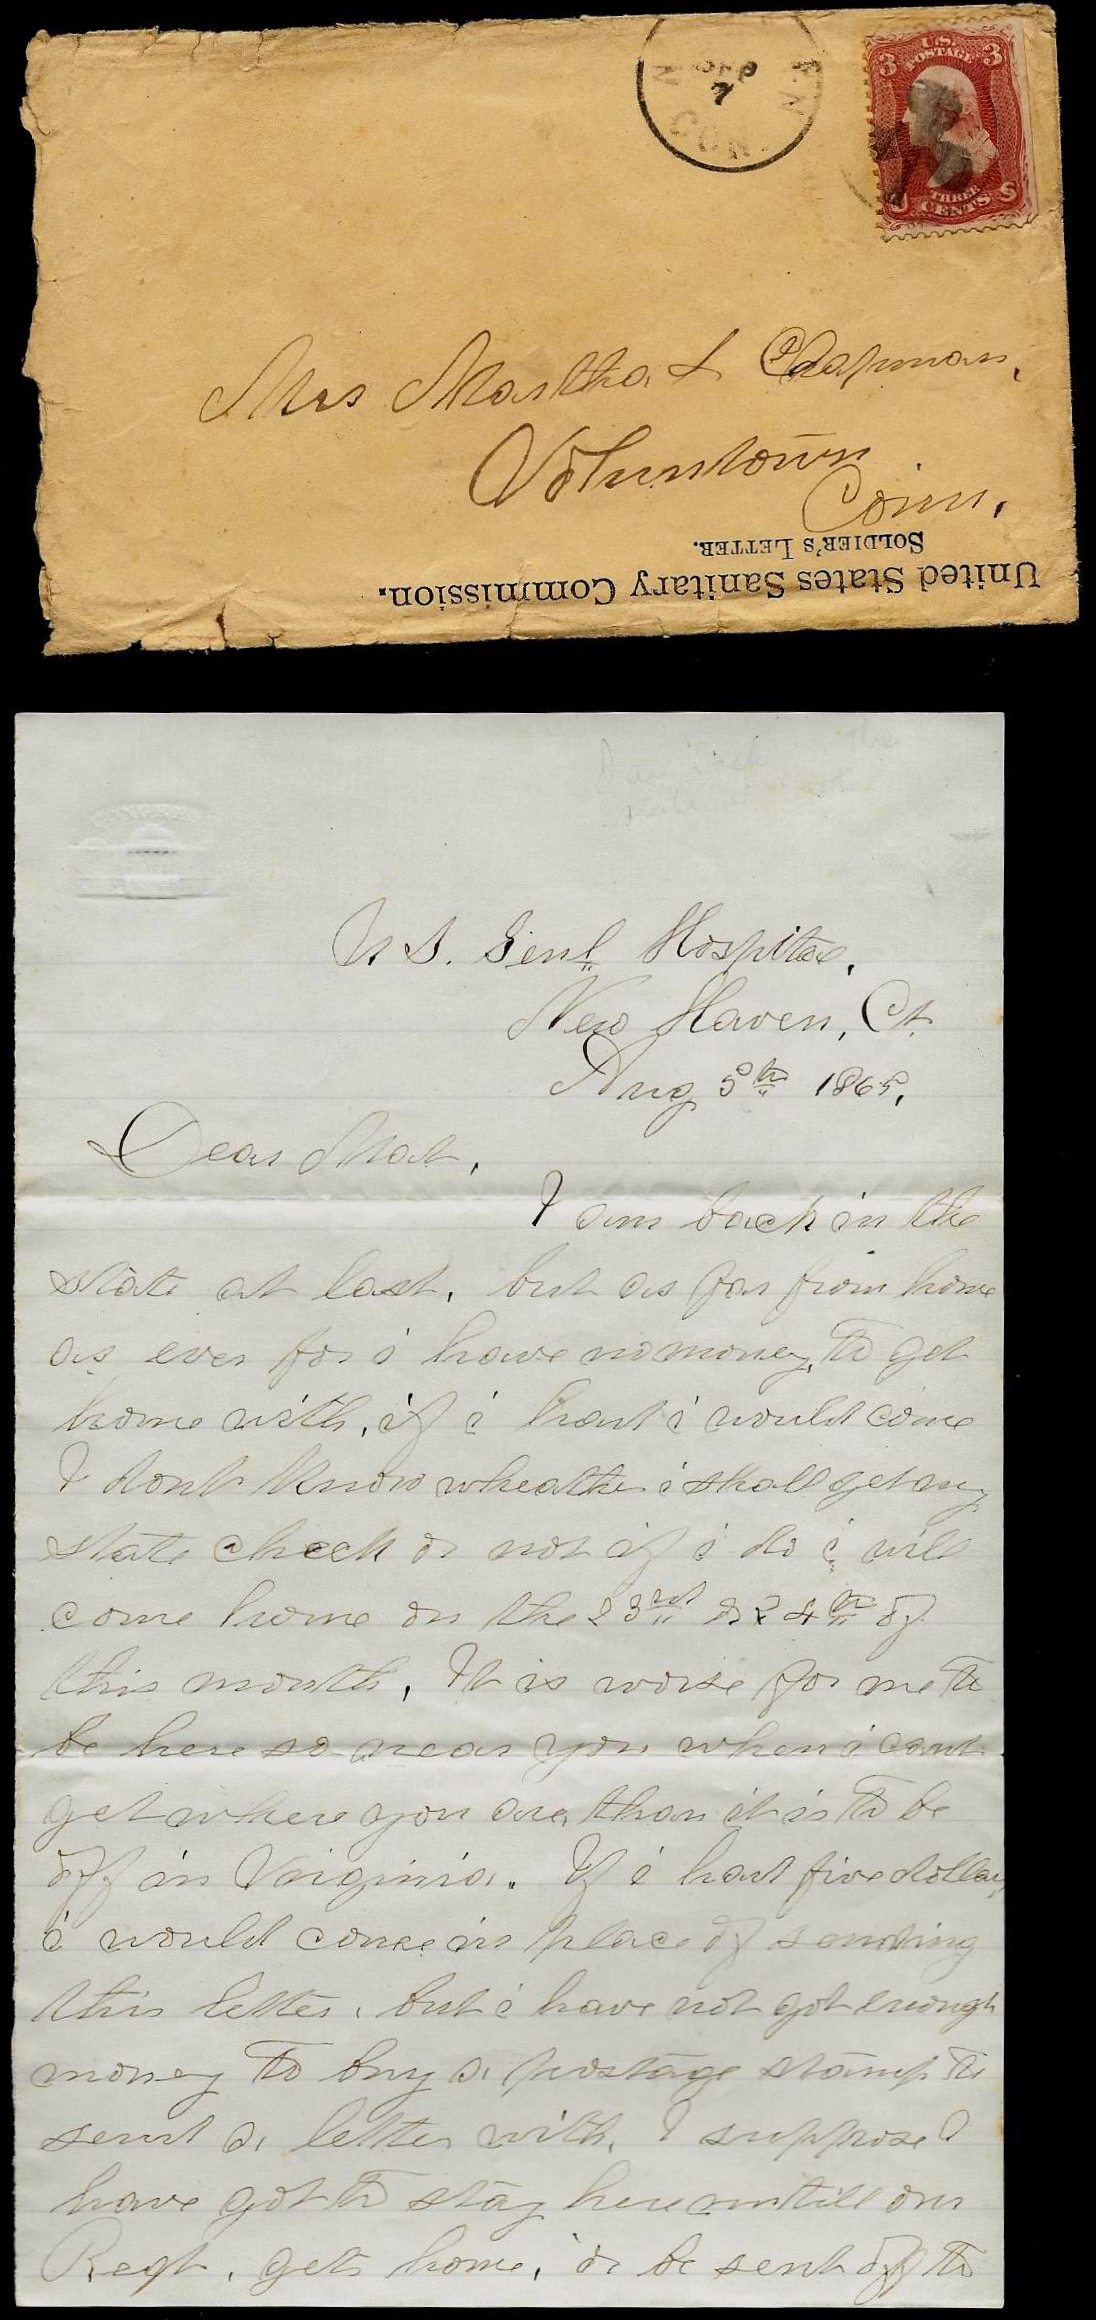 SEP
7
CON
U.S.
POSTAGE
3 3
THREE
CENTS
Mrs Martha L Chapman,
Voluntown
Conn.
SOLDIER'S LETTER.
United States Sanitary Commission.
CONGRESS
U S. Genl Hospital,
New Haven, Ct.
Aug 5th 1865,
Dear Mat,
I am back in the
state at last, but as far from home
as ever for i have no money, to get
home with, if i had i would come
I dont know wheather i shall get any
state check or not if i do i will
come home on the 23rd or 24th of
this month, It is worse for me to
be here so near you when i cant
get where you are, than it is to be
off in Virginia. If i had five dollars
i would come in place of sending
this letter, but i have not got enough
money to buy a postage stamp to
send a letter with, I suppose I
have got to stay here untill our
Regt, gets home, or be sent off to